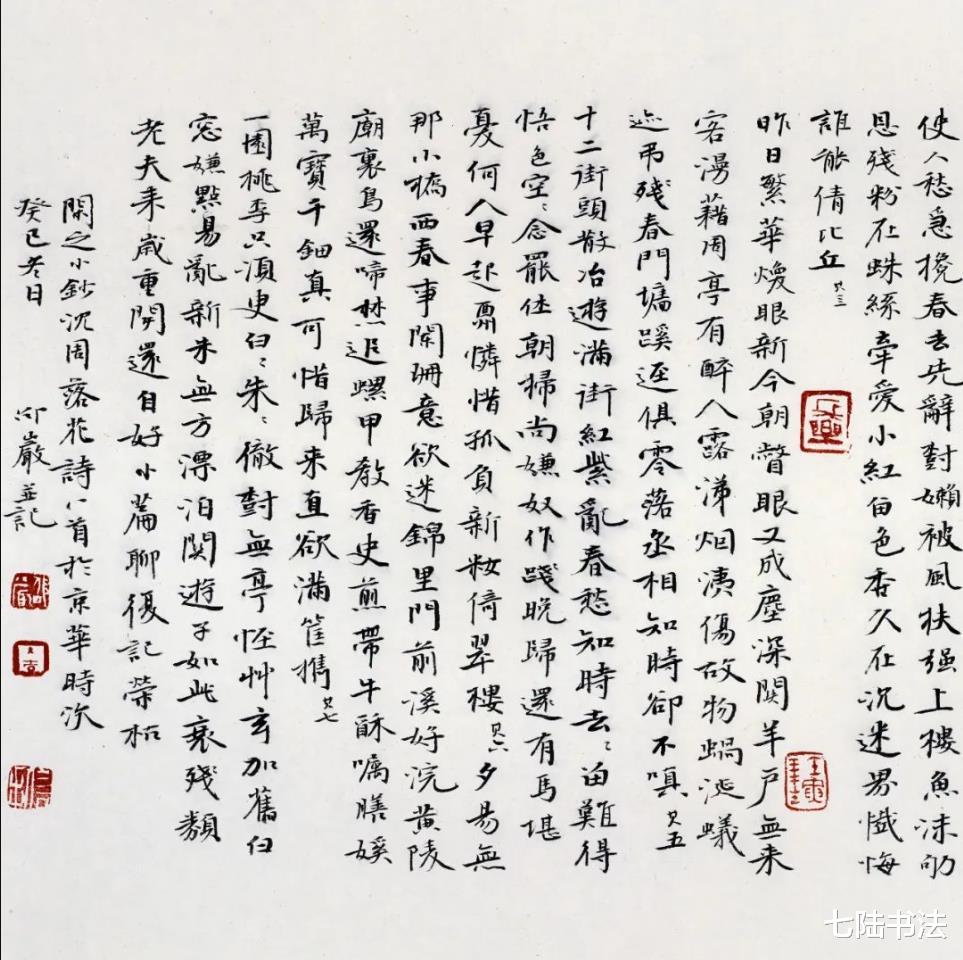 使人愁急攙春去先辭對嬾被風扶强上樓魚沫吻
恩殘粉在蛛絲牽愛小紅留色香久在沉迷界懺悔
誰能倩比丘 其三
昨日繁華煥眼新今朝瞥眼又成塵深関羊戶無来
客漫藉周亭有醉人露涕烟洟傷故物蝸涎蟻
迹弔殘春門墻蹊逕俱零落丞相知時卻不嗔 其五
十二街頭散冶遊滿街紅紫亂春愁知時去〻留難得
悟色空〻念罷休朝掃尚嫌奴作踐晚歸還有馬堪
憂何人早起禸憐惜孤負新妝倚翠樓 其六 夕昜無
那小橋西春事闌珊意欲迷錦里門前溪好浣黄陵
廟裏鳥還啼焚追螺甲教香史煎帶牛酥嘱膳媛
萬寶千鈿真可惜歸来直欲滿筐攜 其七
一園桃李只湏史白〻朱〻徹對無亭恠艸玄加舊白
窓嫌點易亂新朱無方漂泊関遊子如此衰殘類
老夫来歲重開還自好小篇聊復記榮枯
閑之小鈔沈周落花詩八首於京華時次
癸巳冬日 邱嚴並記
七陆书法